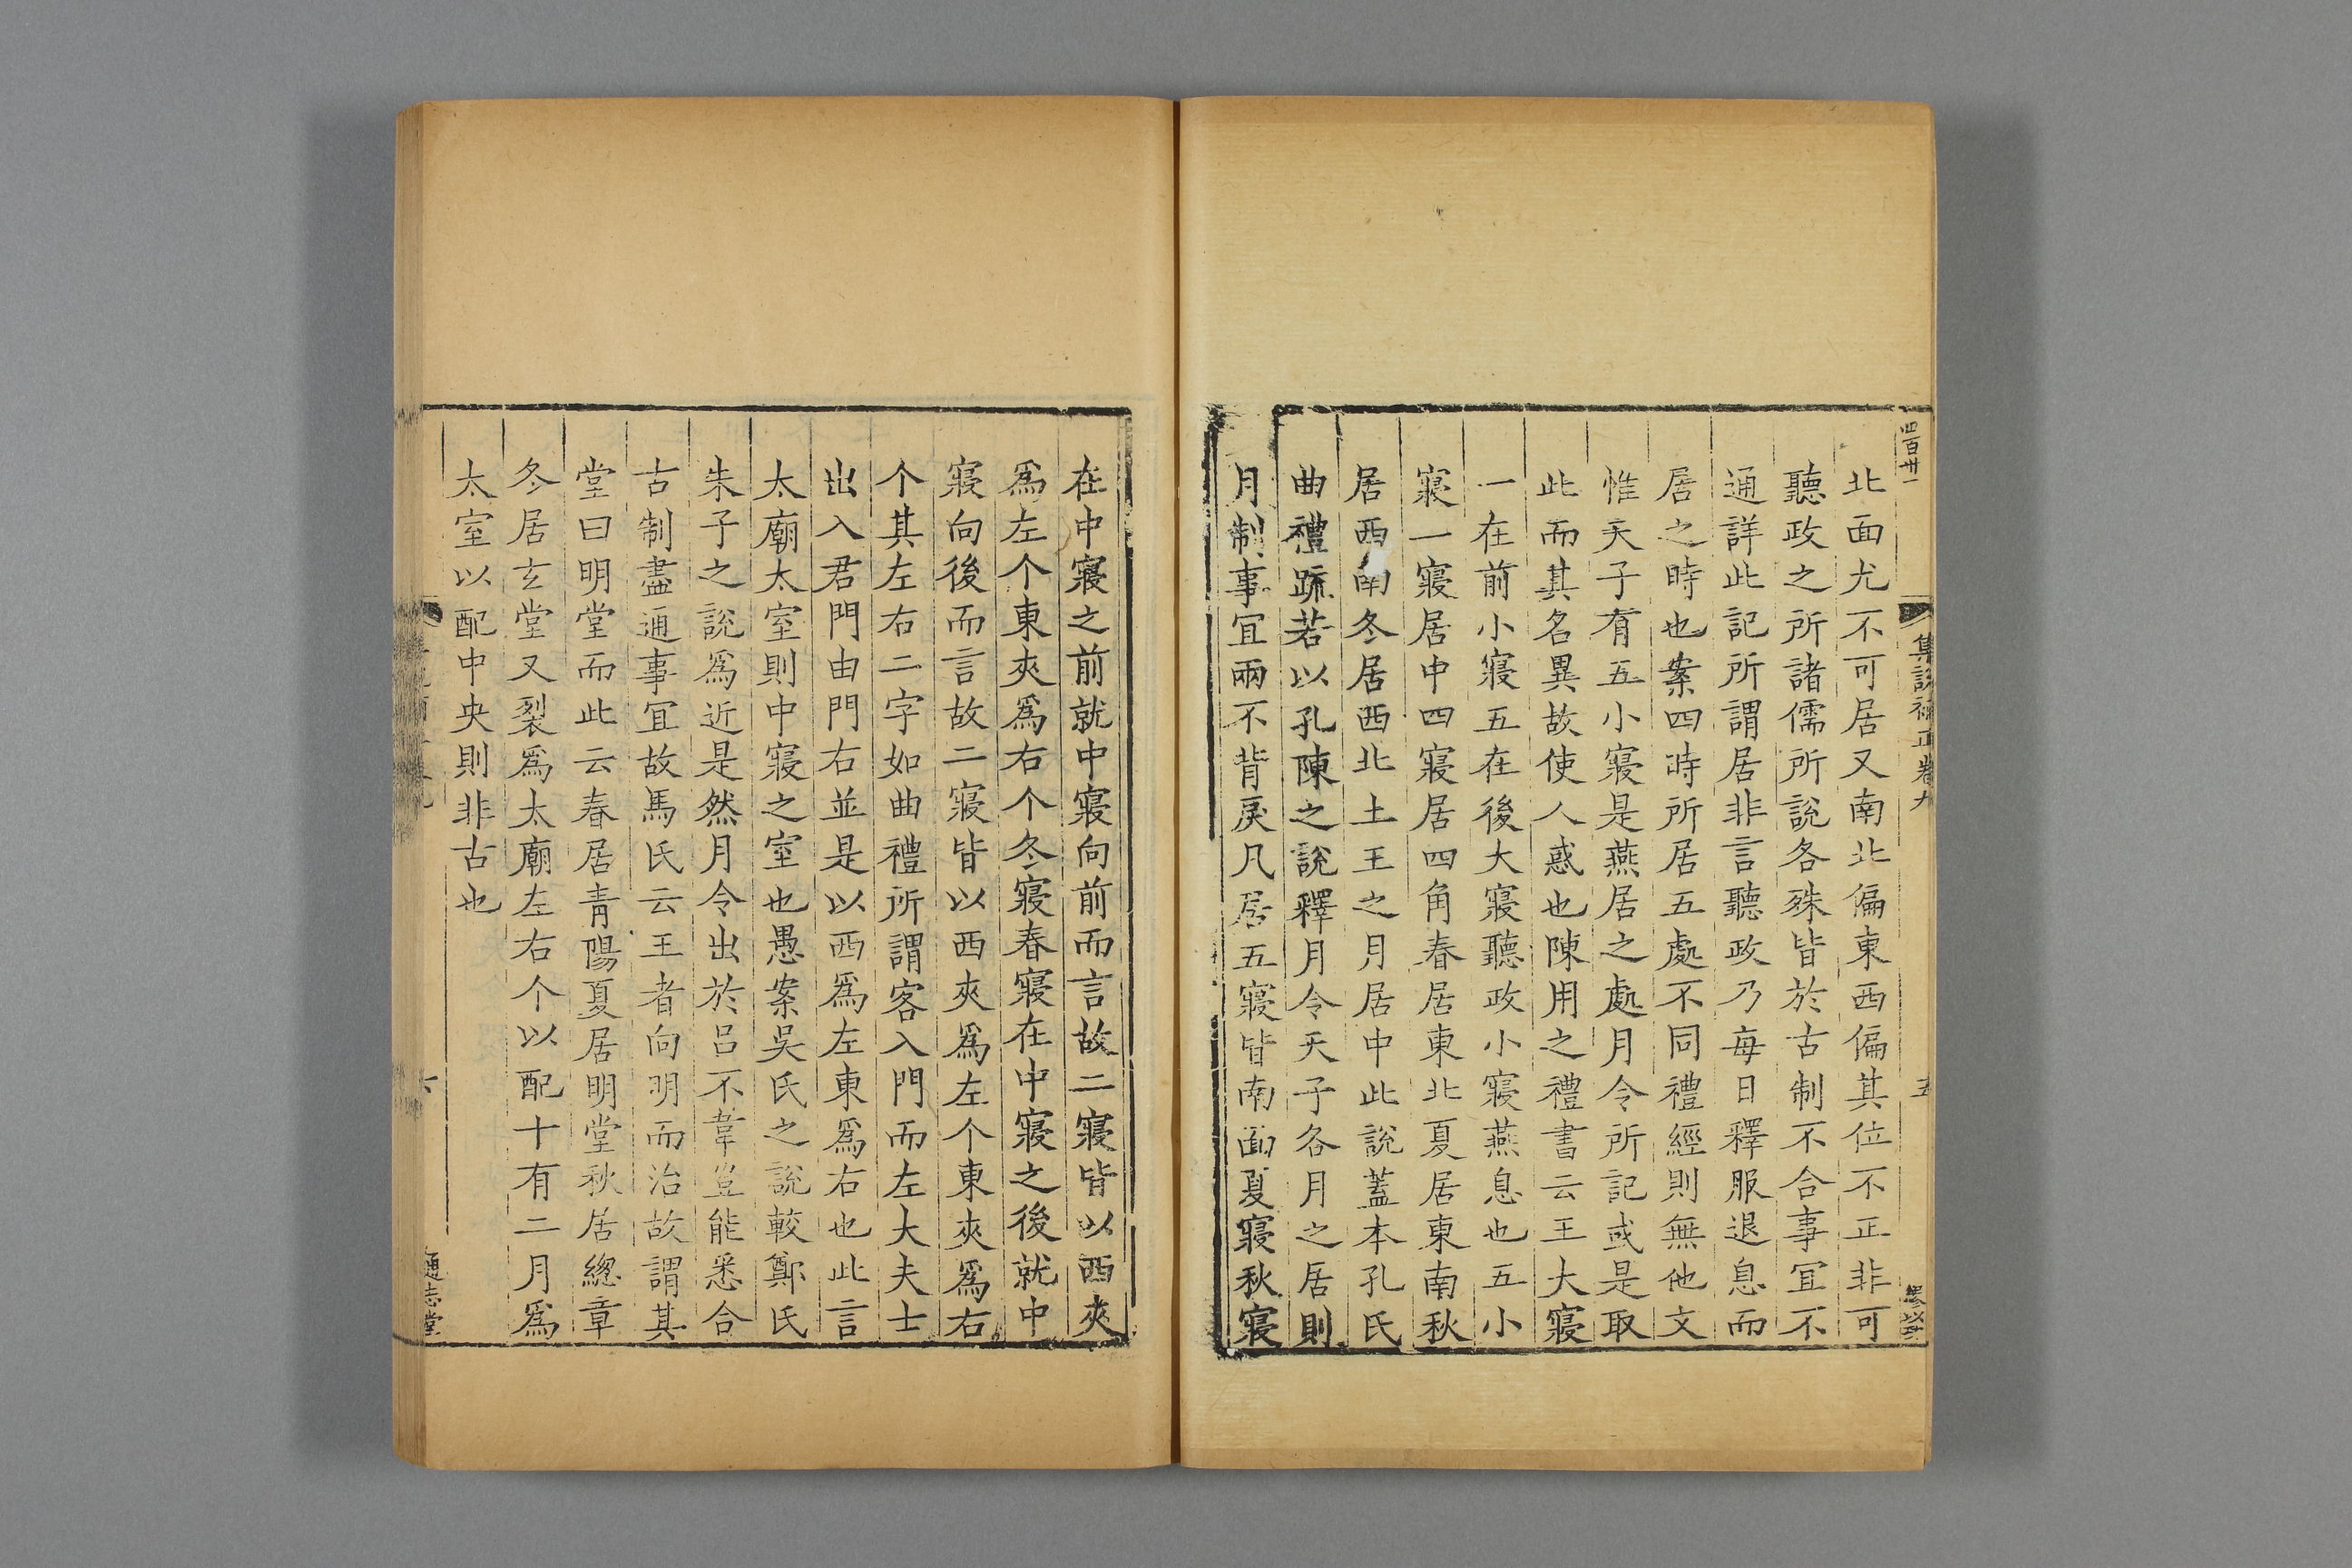 四百卅一
集説補正卷九
五
北面尤不可居又南北偏東西偏其位不正非可
聽政之所諸儒所說各殊皆於古制不合事宜不
通詳此記所謂居非言聽政乃每日釋服退息而
居之時也案四時所居五處不同禮經則無他文
惟天子有五小寢是燕居之處月令所記或是取
此而其名異故使人惑也陳用之禮書云王大寢
一在前小寢五在後大寢聽政小寢燕息也五小
寢一寢居中四寢居四角春居東北夏居東南秋
居西南冬居西北土王之月居中此說蓋本孔氏
曲禮䟽若以孔陳之說釋月令天子各月之居則
月制事宜兩不背戾凡居五寢皆南面夏寢秋寢
在中寢之前就中寢向前而言故二寢皆以西夾
爲左个東夾爲右个冬寢春寢在中寢之後就中
寢向後而言故二寢皆以西夾爲左个東夾爲右
个其左右二字如曲禮所謂客入門而左大夫士
出入君門由門右並是以西爲左東爲右也此言
太廟太室則中寢之室也愚案吳氏之說較鄭氏
朱子之說爲近是然月令出於呂不韋豈能悉合
古制盡通事宜故馬氏云王者向明而治故謂其
堂曰明堂而此云春居青陽夏居明堂秋居總章
冬居玄堂又裂爲太廟左右个以配十有二月爲
太室以配中央則非古也
六
通志堂